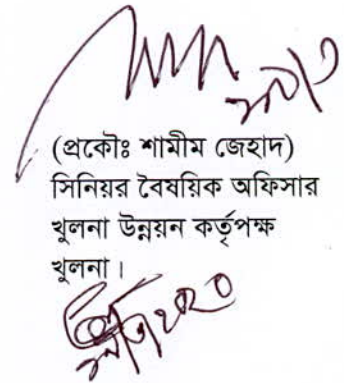 (প্রকৌঃ শামীম জেহাদ)
সিনিয়র বৈষয়িক অফিসার
খুলনা উন্নয়ন কর্তৃপক্ষ
খুলনা।